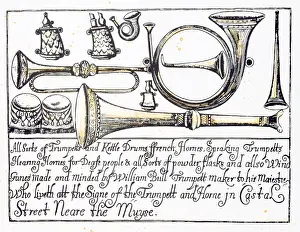 All Sorts of Trumpets and Kettle Drums ffrench Hornes, Speaking Trumpetts
Hearing Hornes for Deafe people & all Sorts of powder flasks and allso Wind
Gunes made and minded by William Bull Trumpett maker to his Maiestie
Who liveth att the Signe of the Trumpett and Horne in Castel
Street Neare the Muse.